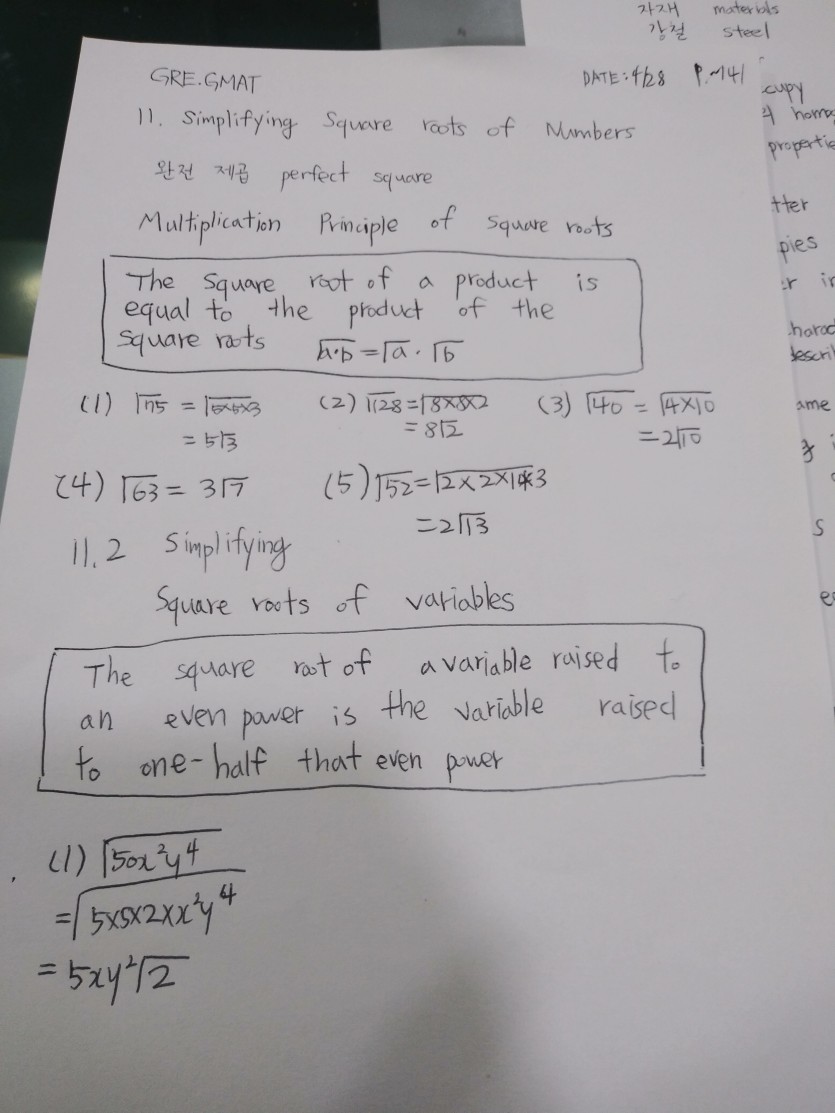 자재 materials
강철 steel
GRE.GMAT DATE: 4/28 P.~141
11. Simplifying Square roots of Numbers
완전 제곱 perfect square
Multiplication Principle of square roots
The square root of a product is
equal to the product of the
square roots √a·b = √a · √b
(1) √75 = √5×5×3 (2) √128 = √8×8×2 (3) √40 = √4×10
= 5√3 = 8√2 = 2√10
(4) √63 = 3√7 (5) √52 = √2×2×13
= 2√13
11.2 Simplifying
Square roots of variables
The square root of a variable raised to
an even power is the variable raised
to one-half that even power
(1) √50x²y⁴
= √5×5×2×x²y⁴
= 5xy²√2
cupy
propertie
tter
pies
er in
harac
descri
ame
s